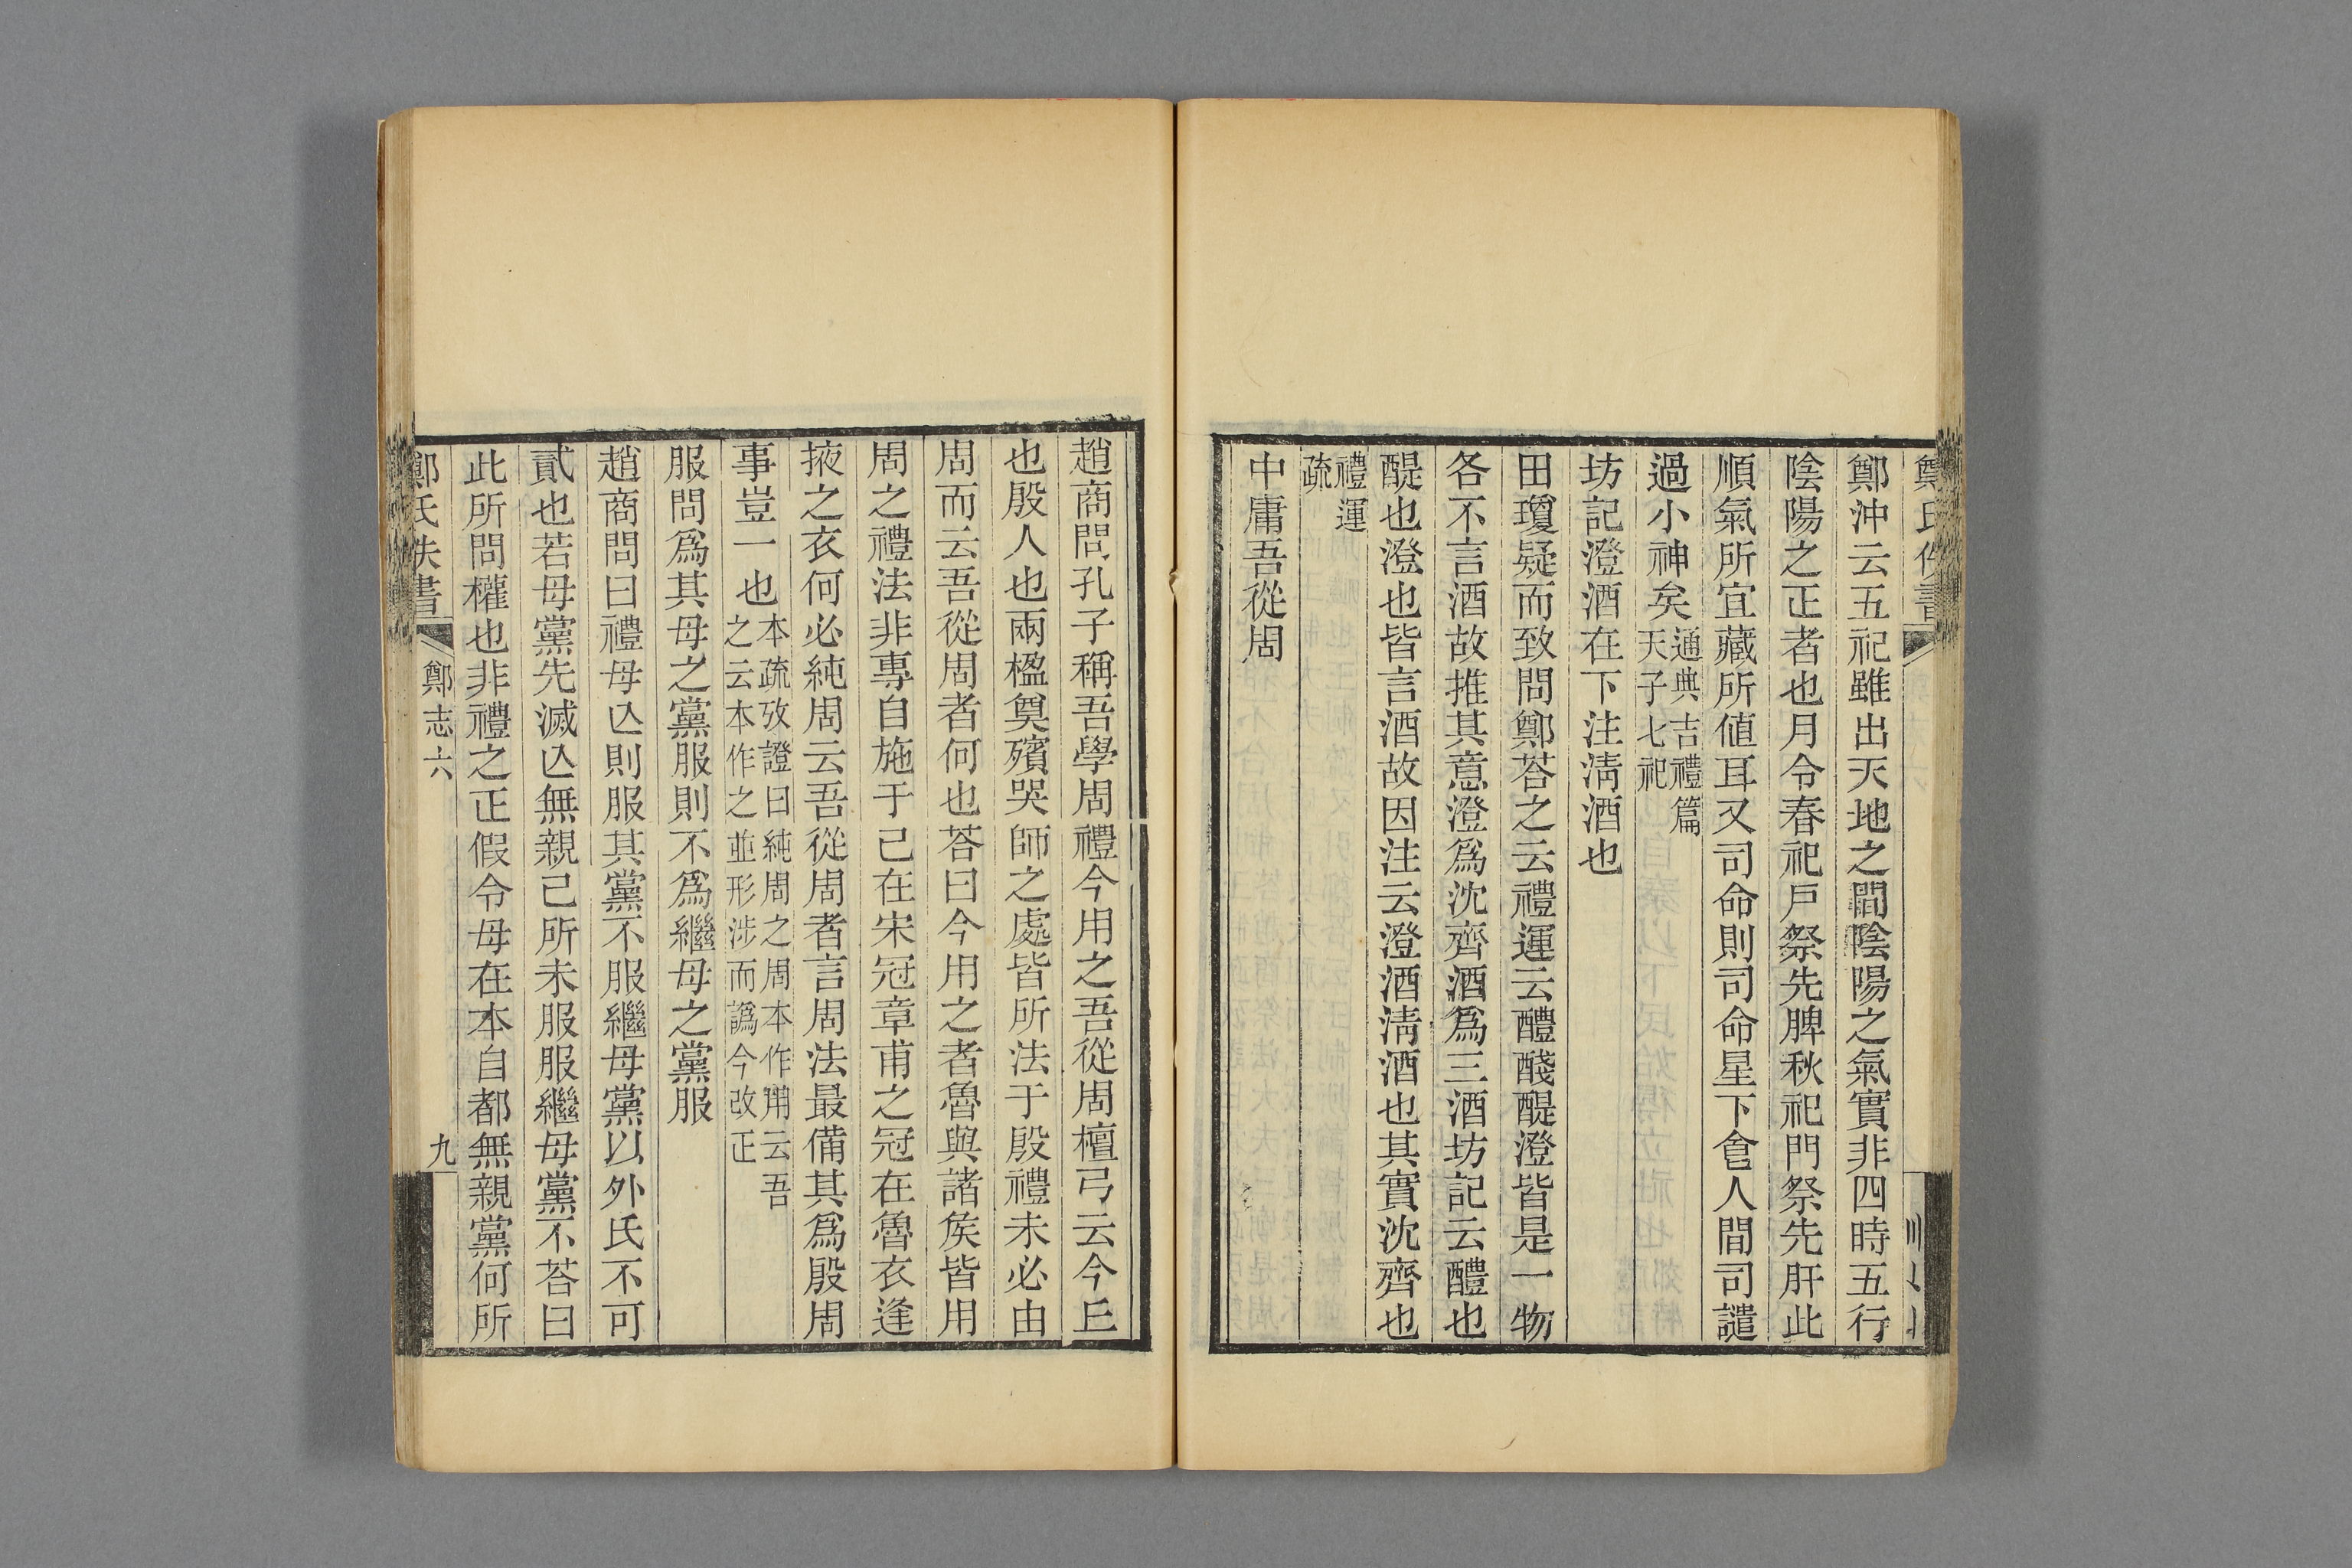 鄭沖云五祀雖出天地之閒陰陽之氣實非四時五行
陰陽之正者也月令春祀戸祭先脾秋祀門祭先肝此
順氣所宜藏所値耳又司命則司命星下食人間司譴
過小神矣通典吉禮篇
天子七祀
坊記澄酒在下注淸酒也
田瓊疑而致問鄭荅之云禮運云醴醆醍澄皆是一物
各不言酒故推其意澄爲沈齊酒爲三酒坊記云醴也
醍也澄也皆言酒故因注云澄酒淸酒也其實沈齊也
禮運
疏
中庸吾從周
趙商問孔子稱吾學周禮今用之吾從周檀弓云今丘
也殷人也兩楹奠殯哭師之處皆所法于殷禮未必由
周而云吾從周者何也荅曰今用之者魯與諸侯皆用
周之禮法非專自施于己在宋冠章甫之冠在魯衣逢
掖之衣何必純周云吾從周者言周法最備其爲殷周
事豈一也本疏攷證曰純周之周本作用云吾
之云本作之並形涉而譌今改正
服問爲其母之黨服則不爲繼母之黨服
趙商問曰禮母亾則服其黨不服繼母黨以外氏不可
貳也若母黨先滅亾無親己所未服服繼母黨不荅曰
此所問權也非禮之正假令母在本自都無親黨何所
鄭氏佚書
鄭志六
九